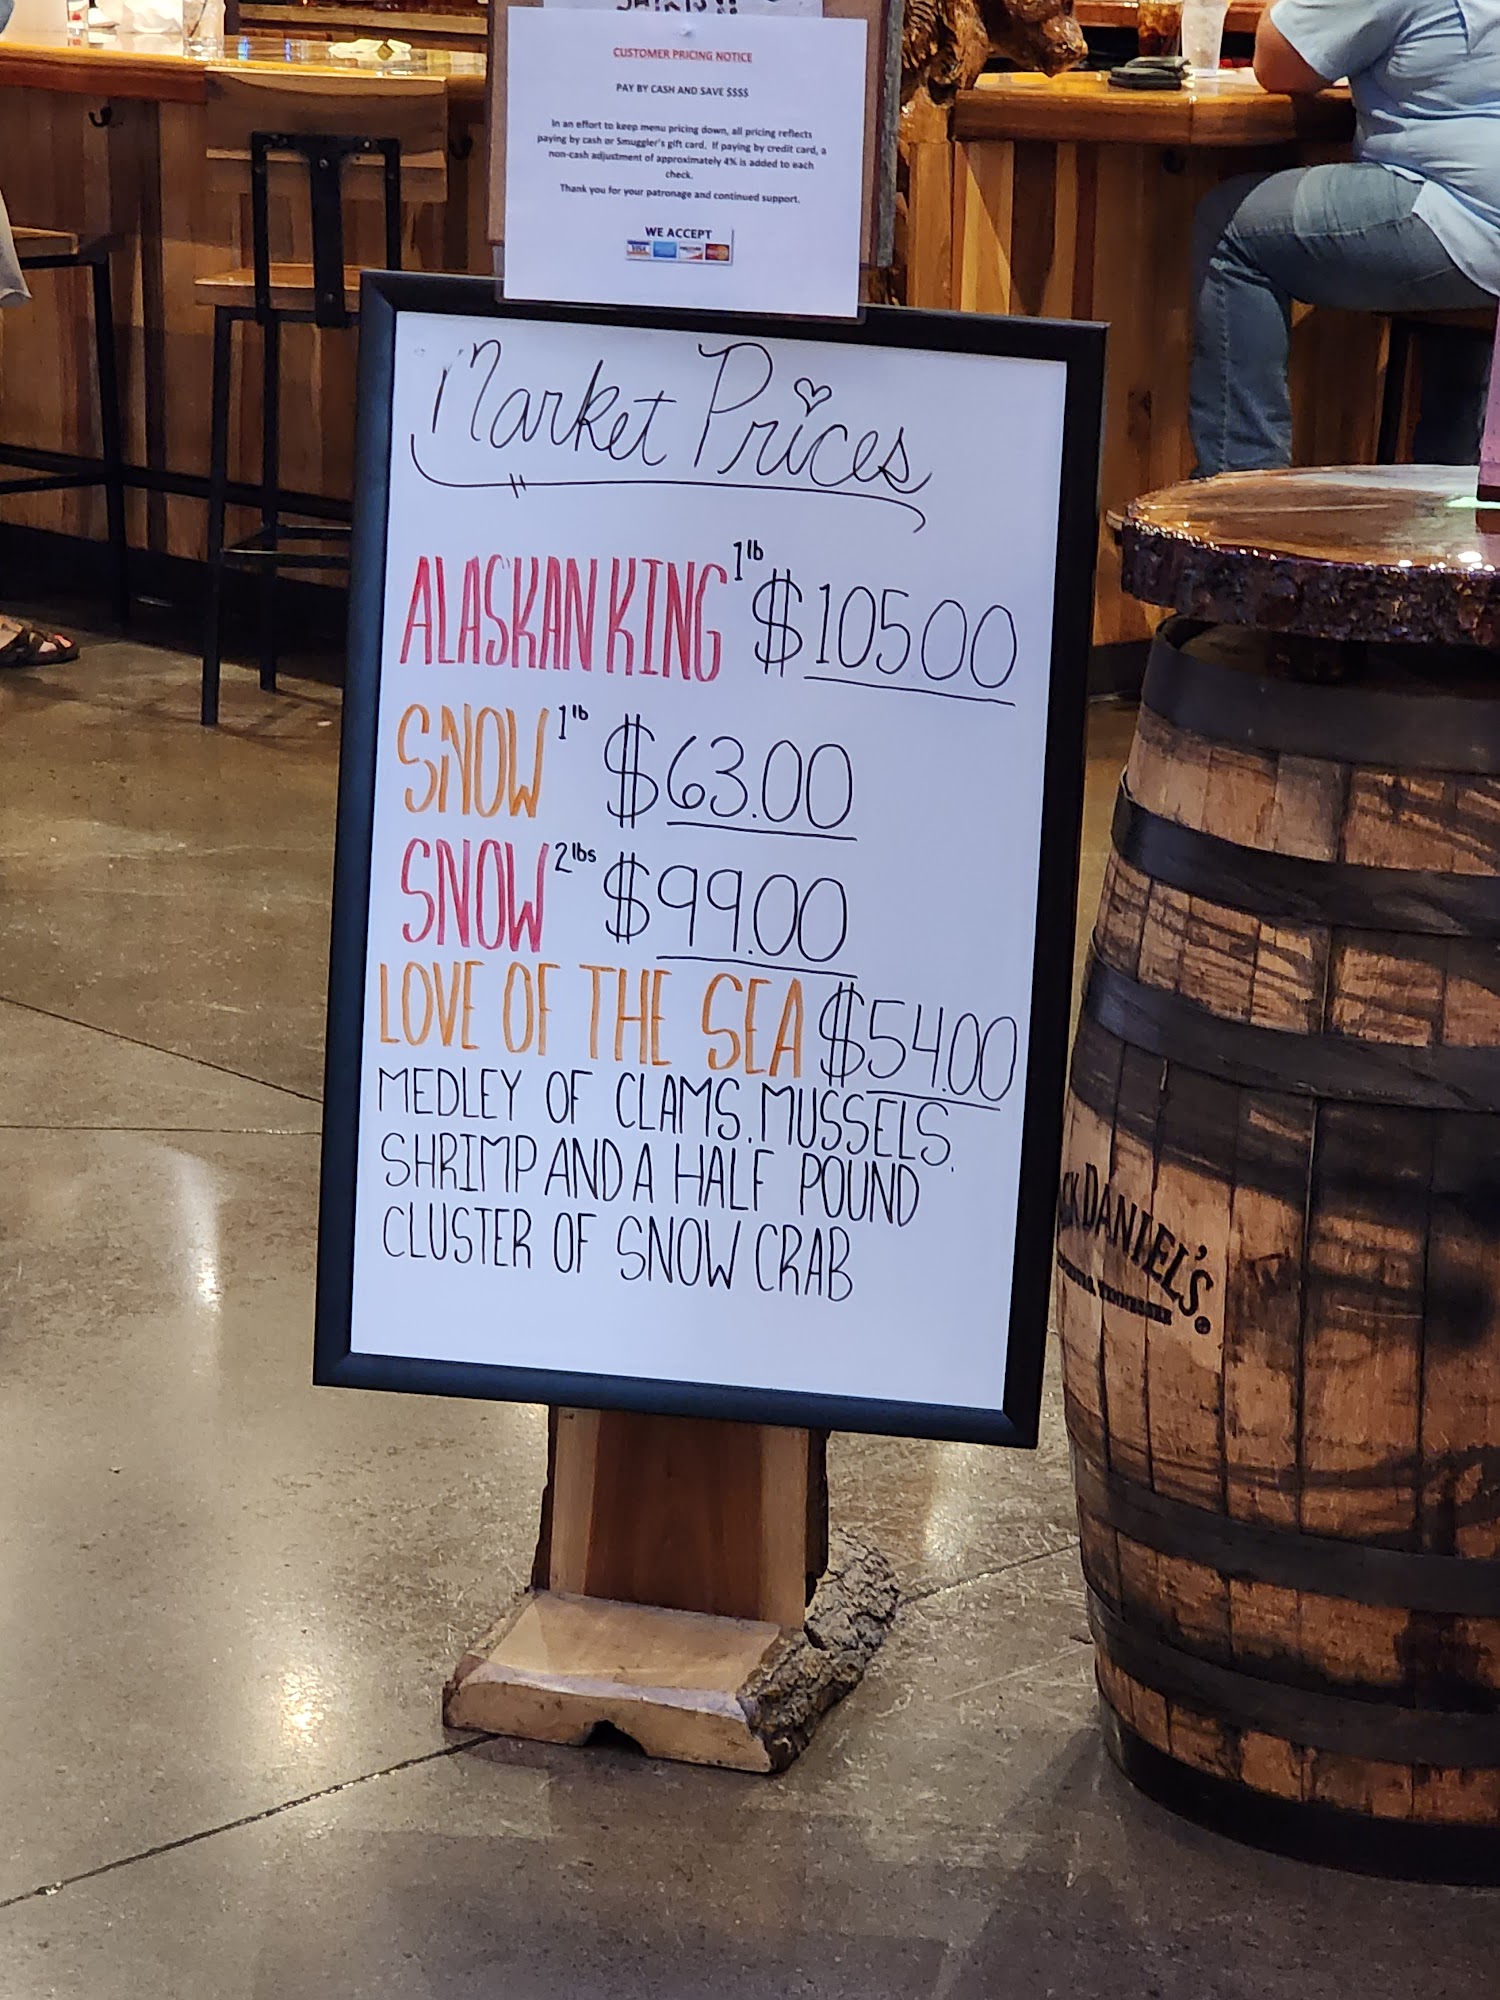 CUSTOMER PRICING NOTICE
PAY BY CASH AND SAVE $$$$
In an effort to keep menu pricing down, all pricing reflects
paying by cash or Smuggler's gift card. If paying by credit card, a
non-cash adjustment of approximately 4% is added to each
check.
Thank you for your patronage and continued support.
WE ACCEPT
VISA
Market Prices
ALASKAN KING 1lb $10500
SNOW 1lb $63.00
SNOW 2lbs $99.00
LOVE OF THE SEA $54.00
MEDLEY OF CLAMS, MUSSELS,
SHRIMP AND A HALF POUND
CLUSTER OF SNOW CRAB
DANIEL'S
TENNESSEE